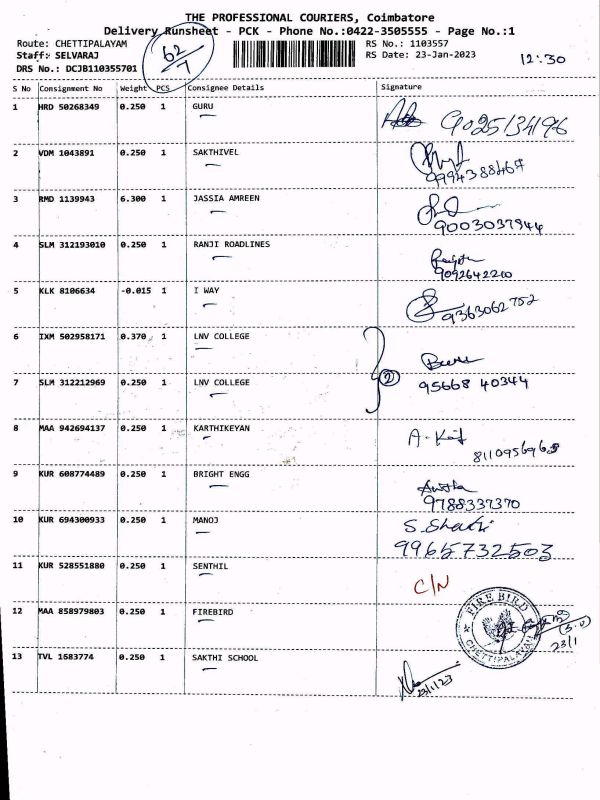 THE PROFESSIONAL COURIERS, Coimbatore
Delivery Runsheet - PCK - Phone No.:0422-3505555 - Page No.:1
Route: CHETTIPALAYAM
Staff: SELVARAJ
DRS No.: DCJB110355701
62/7
RS No.: 1103557
RS Date: 23-Jan-2023
12:30
S No Consignment No Weight PCS Consignee Details Signature
1 HRD 50268349 0.250 1 GURU 9025134196
2 VDM 1043891 0.250 1 SAKTHIVEL 9994388467
3 RMD 1139943 6.300 1 JASSIA AMREEN 9003037944
4 SLM 312193010 0.250 1 RANJI ROADLINES 9092642200
5 KLK 8106634 -0.015 1 I WAY 9363062752
6 IXM 502958171 0.370 1 LNV COLLEGE
7 SLM 312212969 0.250 1 LNV COLLEGE 2 95668 40344
8 MAA 942694137 0.250 1 KARTHIKEYAN 8110956965
9 KUR 608774489 0.250 1 BRIGHT ENGG 9788337370
10 KUR 694300933 0.250 1 MANOJ 9965732503
11 KUR 528551880 0.250 1 SENTHIL C/N
12 MAA 858979803 0.250 1 FIREBIRD FIRE BIRD CHETTIPALAYAM 23/1
13 TVL 1683774 0.250 1 SAKTHI SCHOOL 23/1/23